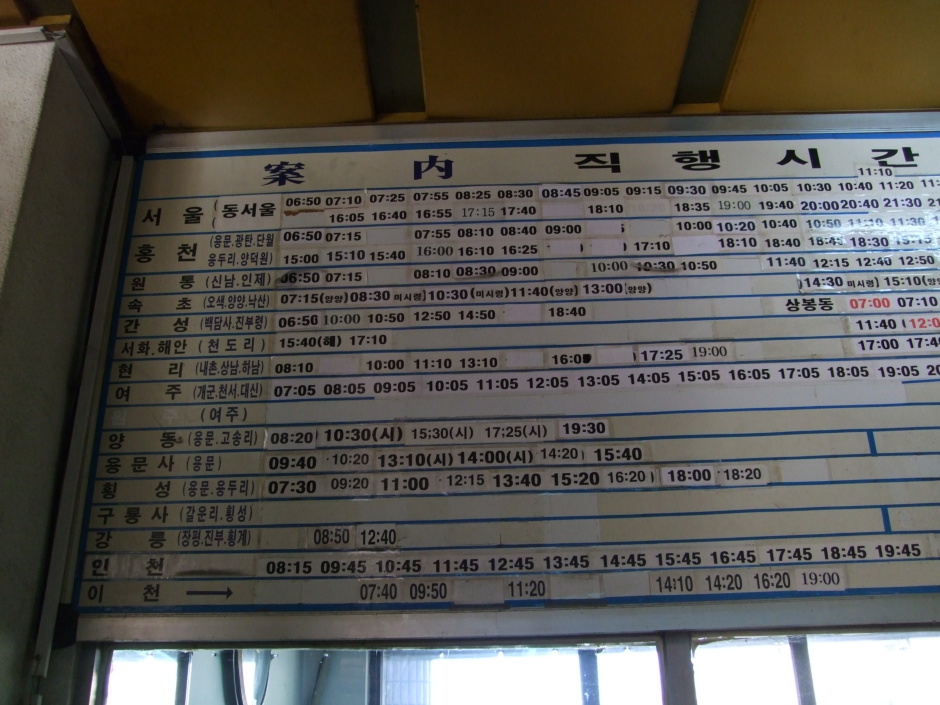 案 内 직 행 시 간
11:10
서 울 (동서울 06:50 07:10 07:25 07:55 08:25 08:30 08:45 09:05 09:15 09:30 09:45 10:05 10:30 10:40 11:20
16:05 16:40 16:55 17:15 17:40 18:10 18:35 19:00 19:40 20:00 20:40 21:30
홍 천 (용문.광탄.단월 06:50 07:15 07:55 08:10 08:40 09:00 10:00 10:20 10:40 10:50 11:10 11:30
용두리.양덕원) 15:00 15:10 15:40 16:00 16:10 16:25 17:10 18:10 18:40 18:45 18:30
원 통 (신남.인제) 06:50 07:15 08:10 08:30 09:00 10:00 10:30 10:50 11:40 12:15 12:40 12:50
속 초 (오색.양양.낙산) 07:15(양양) 08:30 미시령) 10:30(미시령) 11:40(양양) 13:00(양양) 14:30 미시령) 15:10
간 성 (백담사.진부령) 06:50 10:00 10:50 12:50 14:50 18:40 상봉동 07:00 07:10
11:40
서화.해안 (천도리) 15:40(해) 17:10 17:00
현 리 (내촌.상남.하남) 08:10 10:00 11:10 13:10 16:00 17:25 19:00
여 주 (개군.천서.대신) 07:05 08:05 09:05 10:05 11:05 12:05 13:05 14:05 15:05 16:05 17:05 18:05 19:05
(여주)
양 동 (용문.고송리) 08:20 10:30(시) 15;30(시) 17;25(시) 19:30
용문사 (용문) 09:40 10:20 13:10(시) 14:00(시) 14:20 15:40
횡 성 (용문.용두리) 07:30 09:20 11:00 12:15 13:40 15:20 16:20 18:00 18:20
구룡사 (갈운리.횡성)
강 릉 (장평.진부.횡계) 08:50 12:40
인 천 08:15 09:45 10:45 11:45 12:45 13:45 14:45 15:45 16:45 17:45 18:45 19:45
이 천 → 07:40 09:50 11:20 14:10 14:20 16:20 19:00